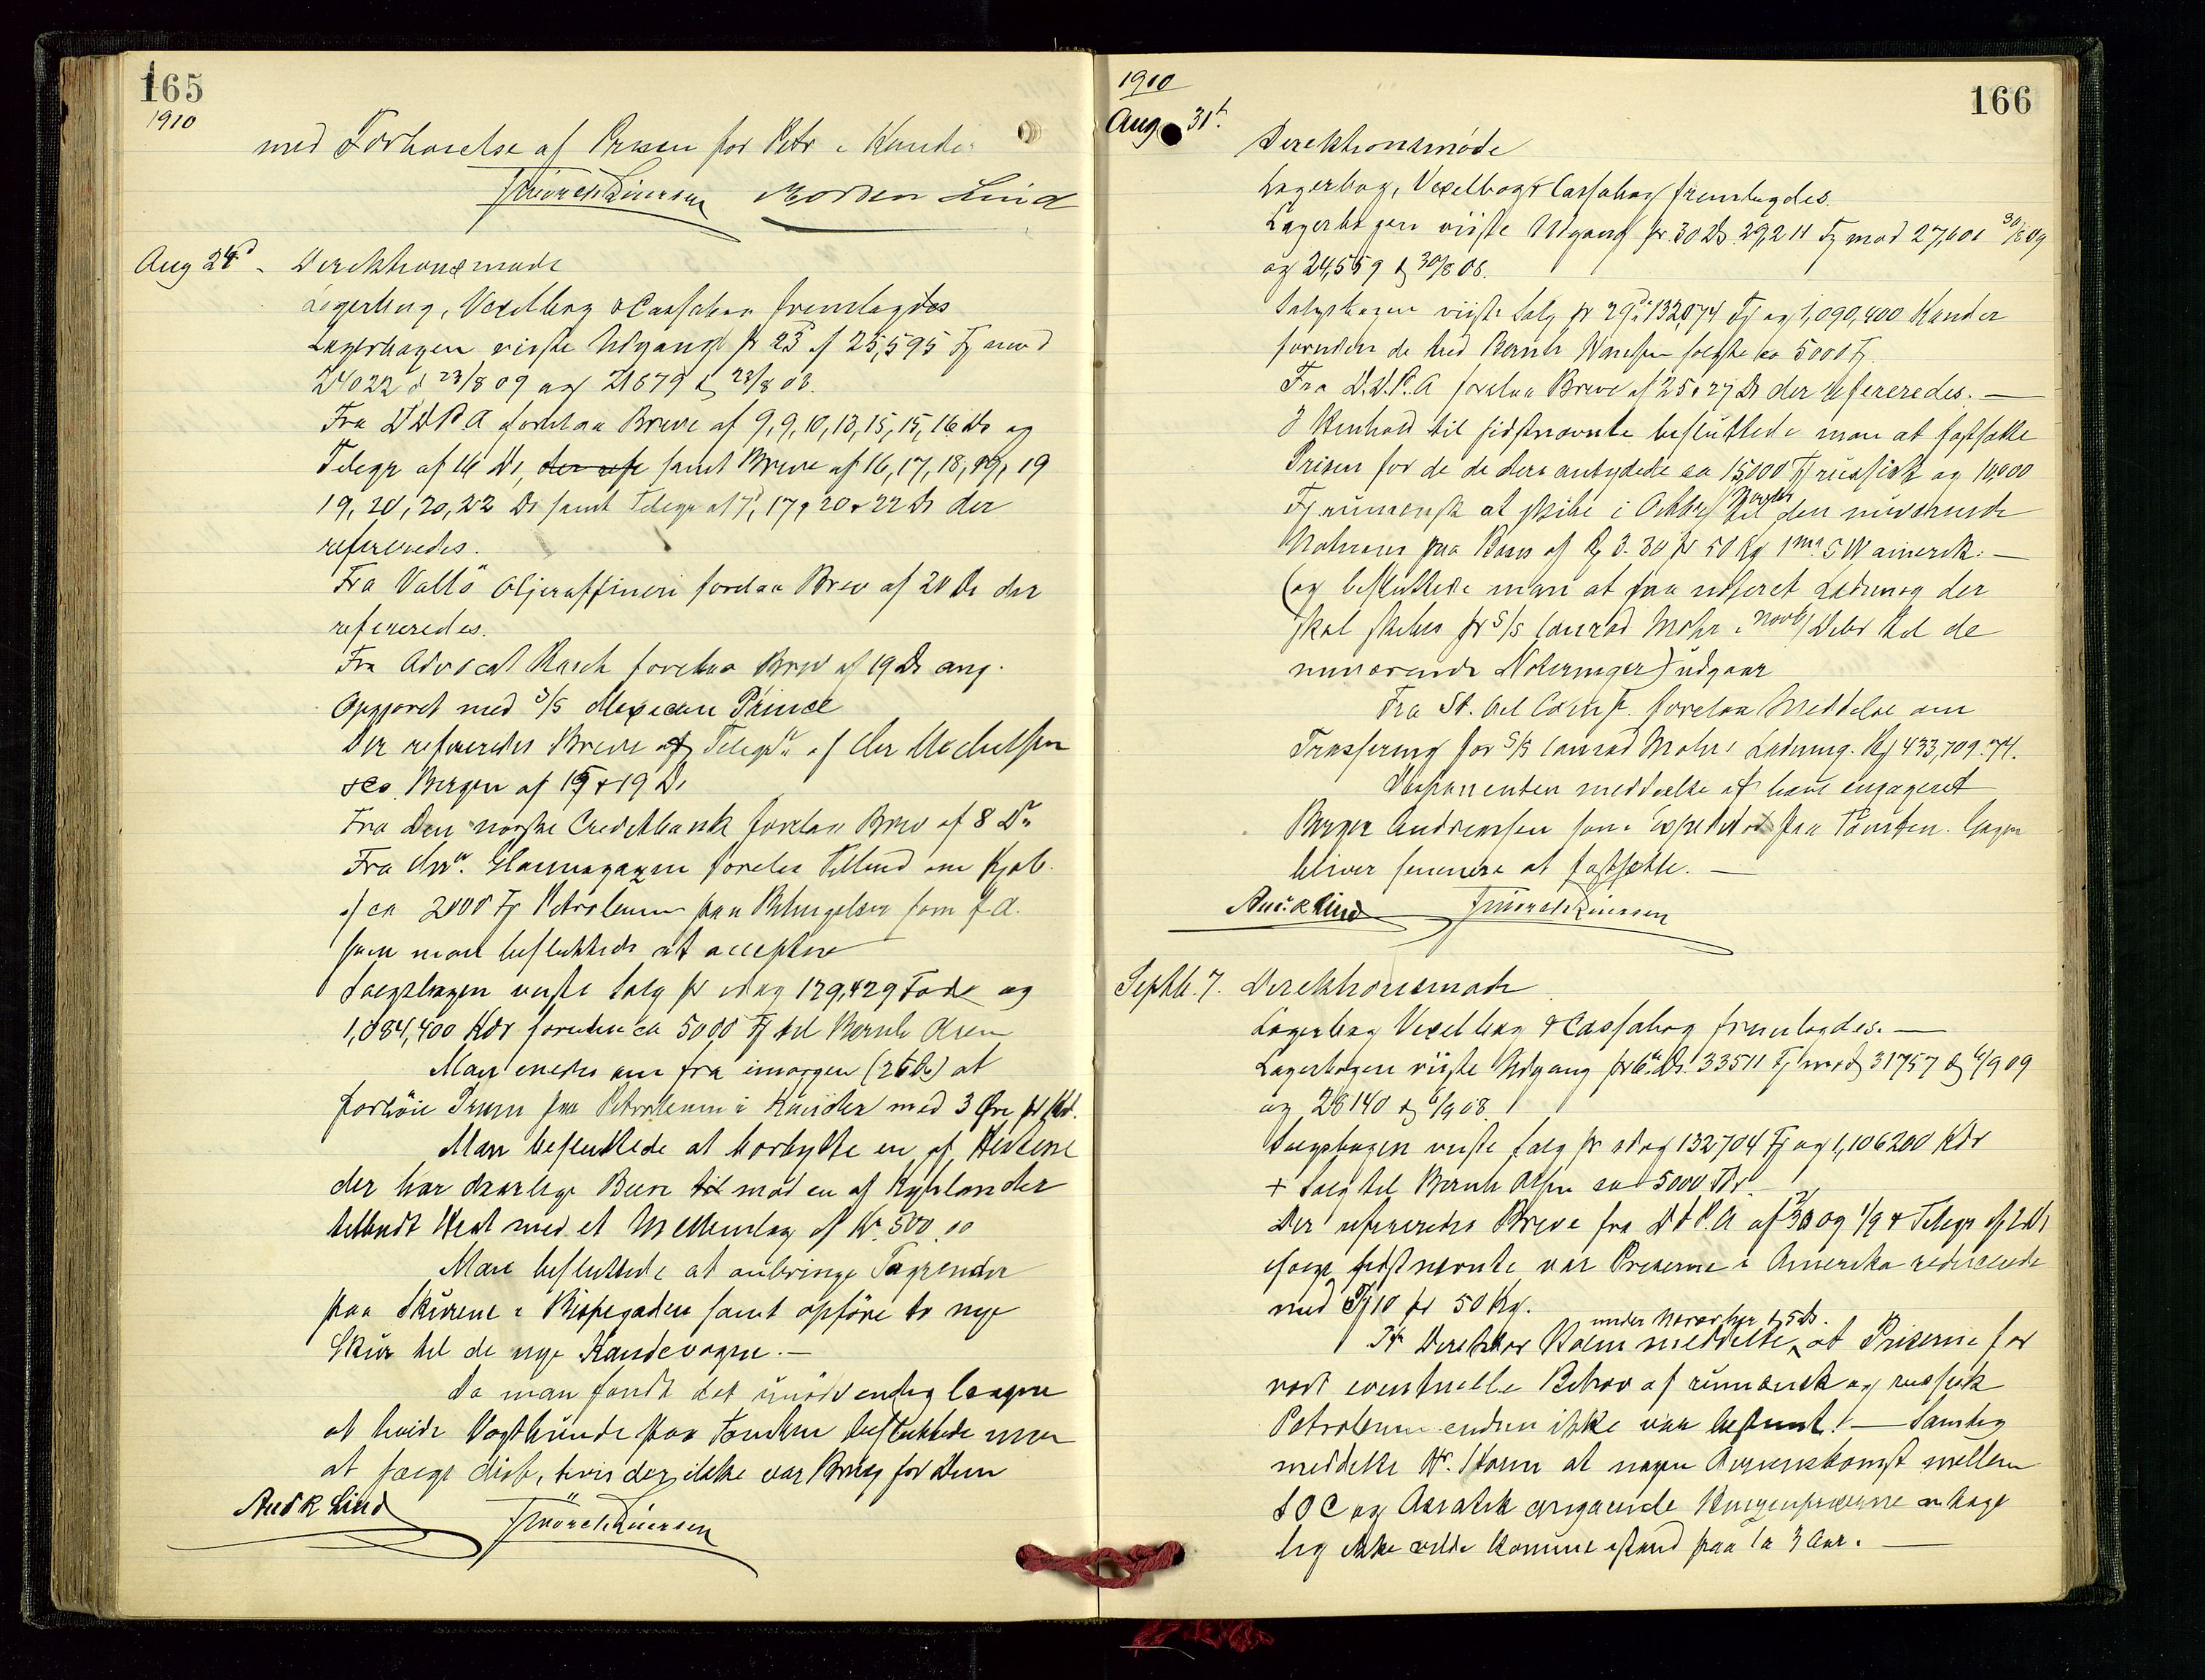 165
1910
med Forhøielse af Prisen for Petr i Kander
Aug 24d. Direktionsmøde
Lagerbog, Vexelbog & Cassabog fremlagdes
Lagerbogen viiste Udgang pr 23 ds 25,595 Fj mod
24022 d 23/8 09 og 21679 d 23/8 08.
Fra DDPA forelaa Breve af 9, 9, 10, 13, 15, 15, 16 Ds og
Telegr af 16 Ds, der refe samt Breve af 16, 17, 18, 19, 19
19, 20, 20, 22 Ds samt Telegr af 17, 17, 20 & 22 Ds der
refereredes.
Fra Vallö Oljeraffineri forelaa Brev af 20 Ds der
refereredes.
Fra Advocat Rasch forelaa Brev af 19 Ds ang.
Opgjøret med S/S Mexican Prince
Der refereredes Breve og Telegr af Chr Michelsen
& Co. Bergen af 15 & 19 Ds
Fra Den norske Creditbank forelaa Brev af 8 Ds
Fra Glasmagazin forelaa Tilbud om Kjøb
af ca 2000 Fj Petroleum paa Betingelser som f.A.
som man besluttede at acceptere
Salgsbogen viiste Salg pr idag 129,429 Fade og
1,084,400 Kdr foruden ca 5000 Fj til Bernh Olsen
Man enedes om fra imorgen (25 Ds) at
forhöie Prisen paa Petroleum i Kander med 3 Øre pr Kd.
Man besluttede at bortbytte en af Hestene
der har daarlige Been til mod en af Kyhlander
tilbudt Hest med et Mellemlag af Kr. 500.00
Man besluttede at anbringe Tagrender
paa Skurene i Bispegaden samt opføre to nye
Skur til de nye Kandevogne. —
Da man fandt det unödvendig længere
at holde Vagthunde paa Tomten besluttede man
at sælge disse, hvis der ikke var Brug for Dem
And R Lind
1910
166
Aug 31t.
Direktionsmøde
Lagerbog, Vexelbog & Cassabog fremlagdes.
Lagerbogen viiste Udgang pr. 30 Ds. 29,211 Fj mod 27,601 30/8 09
og 24,559 d 30/8 08.
Salgsbogen viiste Salg pr 29 ds 132,074 Fj og 1,090,400 Kander
foruden de til Bernh Hansen solgte ca 5000 Fj.
Fra D.D.P.A forelaa Breve af 25 & 27 Ds der refereredes. —
I Henhold til sidstnævnte besluttede man at fastsætte
Prisen for de deri antydede ca 15,000 Fj russisk og 10,000
Fj rumensk at skibe i Oktbr/Novbr til den nuværende
Notering paa Basis af Rj 3.30 pr 50 Kg 1ma SW amerik. —
(og besluttede man at paa Ladning der
skal skibes pr S/S Conrad Mohr i Novb/Debr til de
nuværende Noteringer) udgaar
Fra St. Oil Comp. forelaa Meddelse om
Trassering for S/S Conrad Mohrs Ladning. Rj 433,709.74.
Disponenten meddeelte at have engageret
Birger Andreassen som Expeditør paa Tomten. Gagen
bliver senere at fastsætte. —
And. R Lind
Septb. 7. Direktionsmøde
Lagerbog Vexelbog & Cassabog fremlagdes. —
Lagerbogen viiste Udgang pr 6 Ds. 33511 Fj mod 31757 d 6/9 09
og 28140 d 6/9 08.
Salgsbogen viiste Salg pr idag 132704 Fj og 1,106200 Kdr
+ Salg til Bernh Olsen ca 5000 Fdr.
Der refereredes Breve fra DDPA af 30 og 1/9 & Telegr af 2 Ds
ifølge sidstnævnte var Priserne i Amerika reducerede
med Pf 10 pr 50 Kg.
under Nærvær d 5 Ds.
Hr Direktør Holm meddelte, at Priserne for
vort eventuelle Behov af rumænsk og russisk
Petroleum endnu ikke var bestemt. — Samtidig
meddelte Hr. Holm at nogen Overenskomst mellem
SOC og Asiatik angaaende Kongepriserne antage
lig ikke vilde komme istand paa ca 3 Aar. —